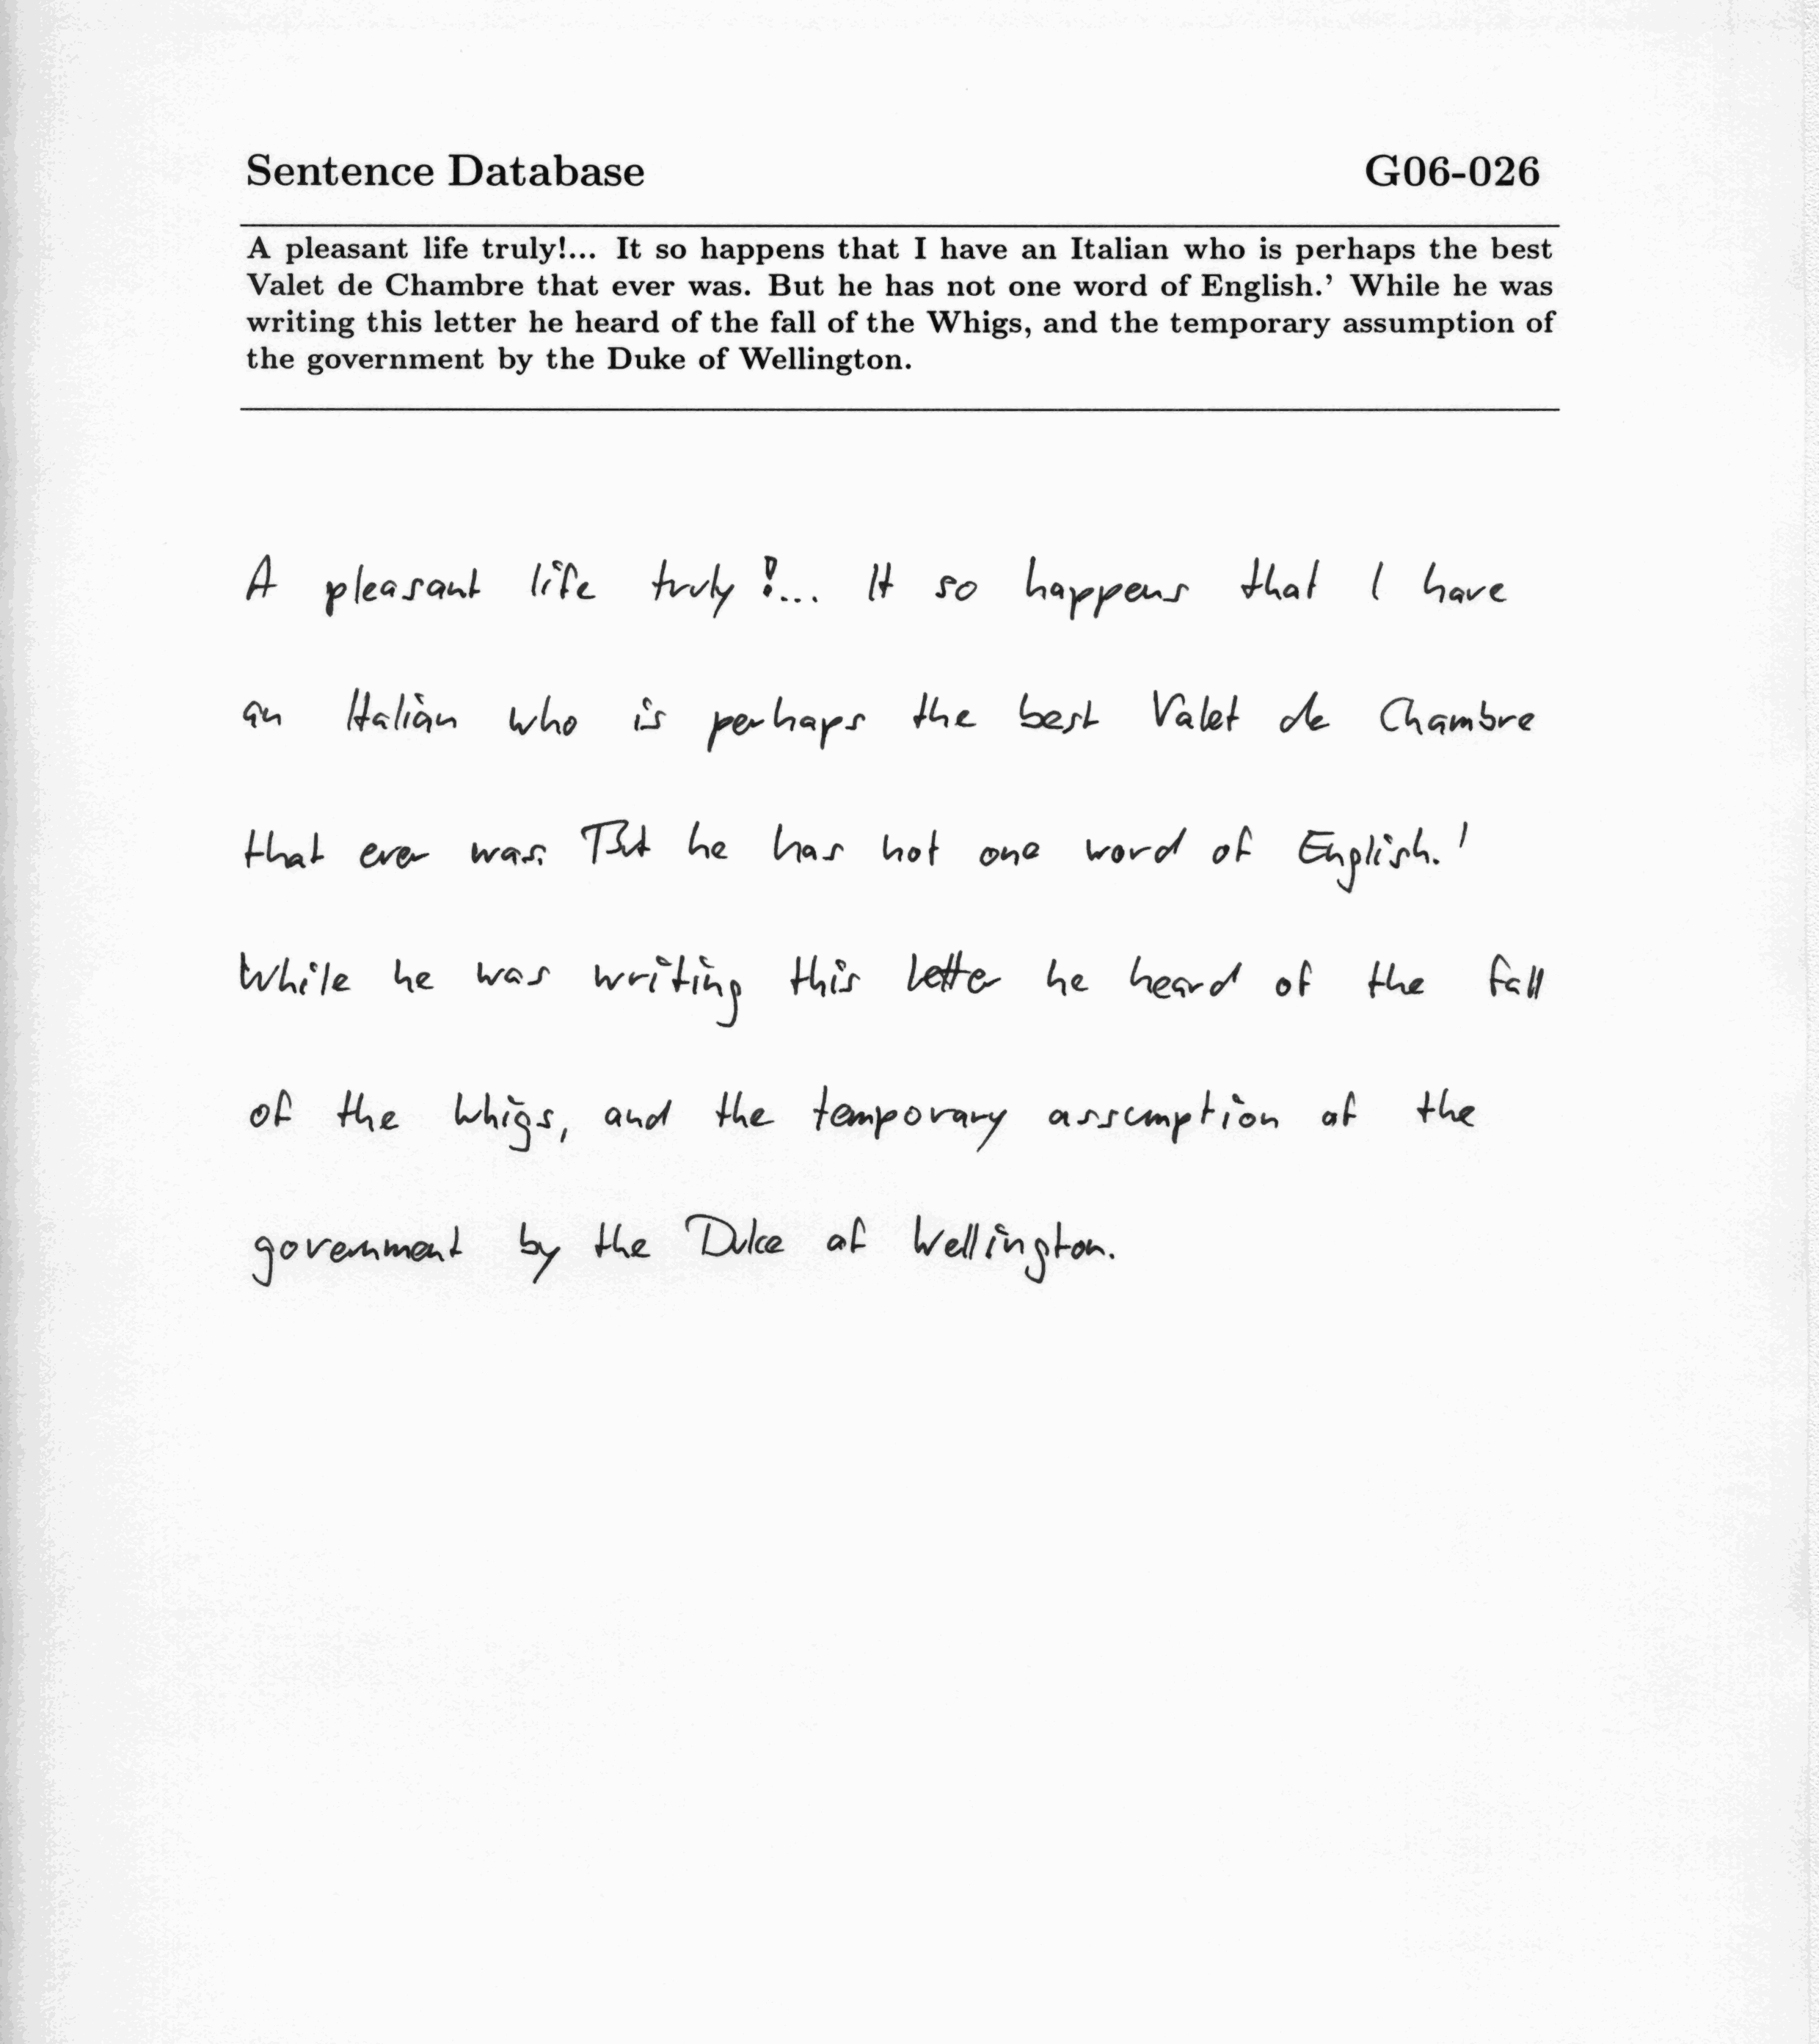 Sentence Database G06-026
A pleasant life truly!... It so happens that I have an Italian who is perhaps the best
Valet de Chambre that ever was. But he has not one word of English.’ While he was
writing this letter he heard of the fall of the Whigs, and the temporary assumption of
the government by the Duke of Wellington.
A pleasant life truly!... It so happens that I have
an Italian who is perhaps the best Valet de Chambre
that ever was. But he has not one word of English.'
While he was writing this letter he heard of the fall
of the Whigs, and the temporary assumption of the
government by the Duke of Wellington.